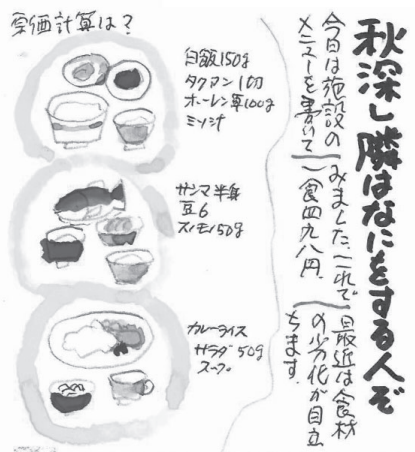 秋深し隣はなにをする人ぞ
今日は施設の
メニューを書いて
みました、これで
一食四九八円
最近は食材
の劣化が目立
ちます。
原価計算は？
白飯150g
タクアン1切
ホーレン草100g
ミソ汁
サンマ半身
豆6
スノモノ50g
カレーライス
サラダ50g
スープ